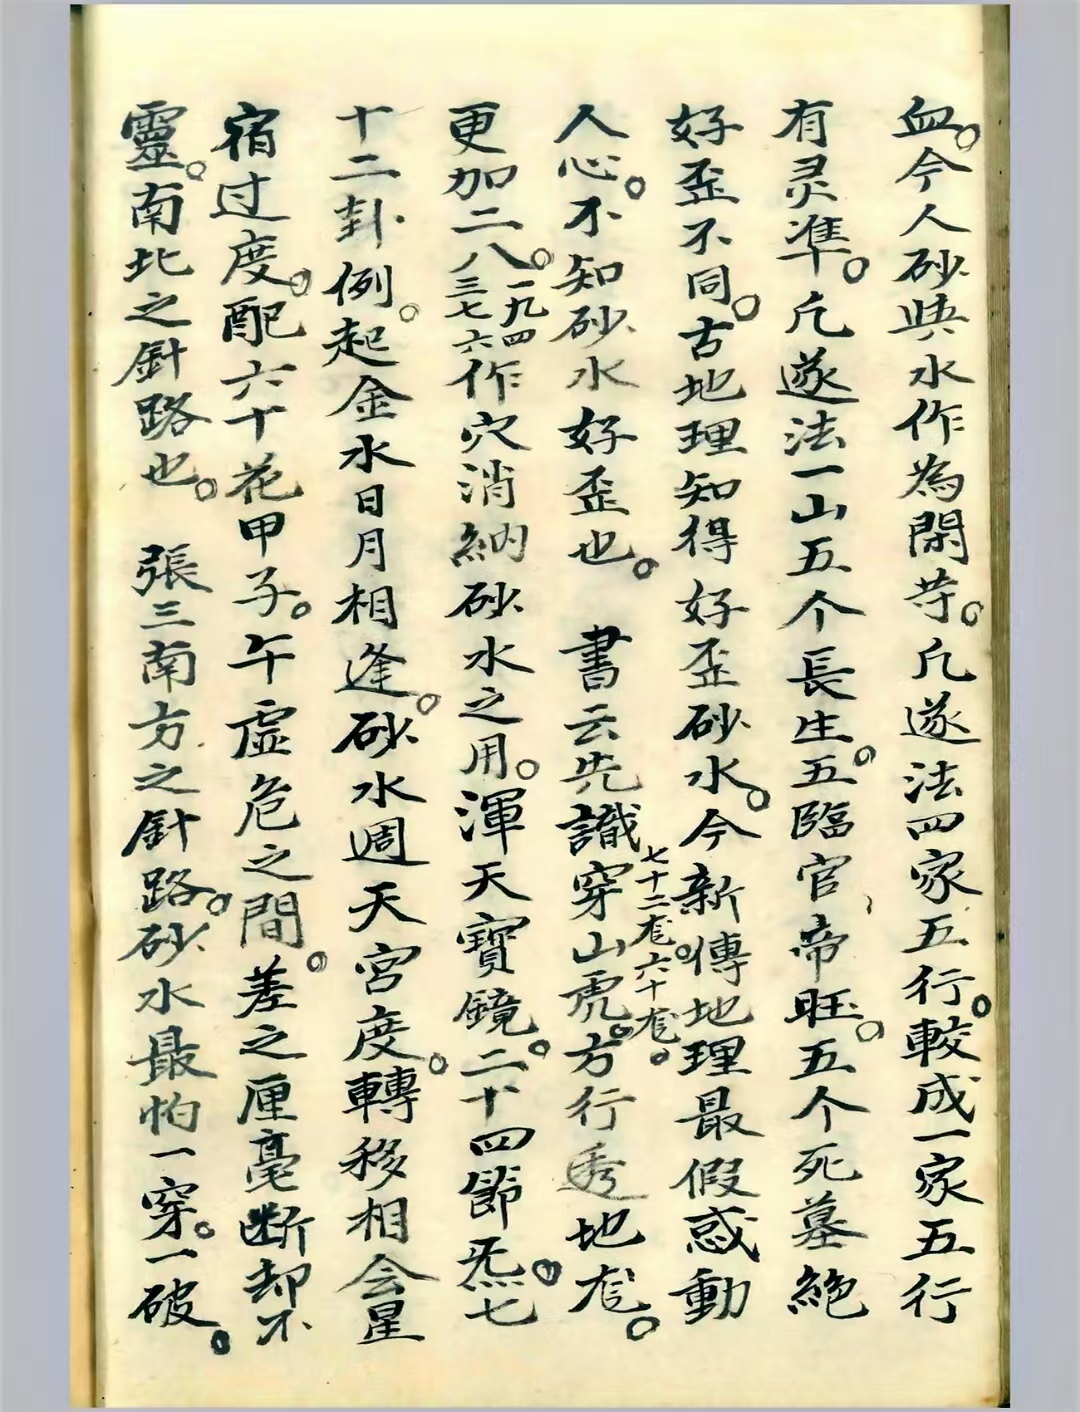 血。今人砂與水作為閑芳。凡遂法四家五行。較成一家五行
有灵準。凡遂法一山五个長生。五臨官帝旺。五个死墓絶
好歪不同。古地理知得好歪砂水。今新傳地理最假惑動
人心。不知砂水好歪也。書云先識穿山虎。七十二龙。六十龙。方行透地龙。
更加二八。一九四三七六作穴消納砂水之用。渾天寶鏡。二十四節炁。七
十二卦例。起金水日月相逢。砂水週天宮度。轉移相会星
宿过度。配六十花甲子。午虛危之間。差之厘毫断却不
靈。南北之針路也。張三南方之針路。砂水最怕一穿。一破。